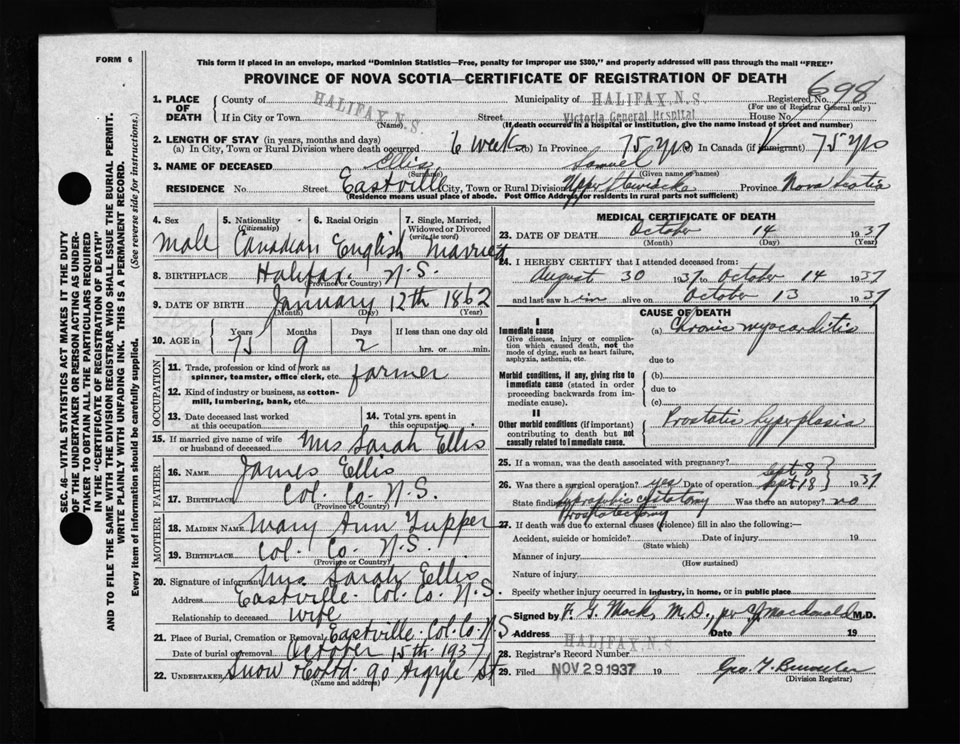 FORM 6
This form if placed in an envelope, marked "Dominion Statistics—Free, penalty for improper use $300," and properly addressed will pass through the mail "FREE"
PROVINCE OF NOVA SCOTIA—CERTIFICATE OF REGISTRATION OF DEATH
698
1. PLACE OF DEATH
County of HALIFAX, N.S. Municipality of HALIFAX, N.S. Registered No.
(For use of Registrar General only)
If in City or Town (Name) Street Victoria General Hospital House No.
(If death occurred in a hospital or institution, give the name instead of street and number)
2. LENGTH OF STAY (in years, months and days)
(a) In City, Town or Rural Division where death occurred 6 weeks (b) In Province 75 yrs In Canada (if immigrant) 75 yrs
3. NAME OF DECEASED Ellis Samuel
(Surname) (Given name or names)
RESIDENCE No. Street Eastville City, Town or Rural Division Upper Stewiacke Province Nova Scotia
(Residence means usual place of abode. Post Office Address for residents in rural parts not sufficient)
4. Sex 5. Nationality (Citizenship) 6. Racial Origin 7. Single, Married, Widowed or Divorced (write the word)
Male Canadian English Married
8. BIRTHPLACE Halifax. N.S.
(Province or Country)
9. DATE OF BIRTH January 12th 1862
(Month) (Day) (Year)
10. AGE in Years Months Days If less than one day old
75 9 2 hrs. or min.
OCCUPATION
11. Trade, profession or kind of work as spinner, teamster, office clerk, etc. farmer
12. Kind of industry or business, as cotton-mill, lumbering, bank, etc.
13. Date deceased last worked at this occupation 14. Total yrs. spent in this occupation
15. If married give name of wife or husband of deceased Mrs Sarah Ellis
FATHER
16. NAME James Ellis
17. BIRTHPLACE Col. Co. N.S.
(Province or Country)
MOTHER
18. MAIDEN NAME Mary Ann Tupper
19. BIRTHPLACE Col. Co. N.S.
(Province or Country)
20. Signature of informant Mrs. Sarah Ellis
Address Eastville. Col. Co. N.S.
Relationship to deceased wife
21. Place of Burial, Cremation or Removal Eastville. Col. Co. N.S
Date of burial or removal October 15th. 1937
22. UNDERTAKER Snow & Co Ltd 90 Argyle St
(Name and address)
MEDICAL CERTIFICATE OF DEATH
23. DATE OF DEATH October 14 1937
(Month) (Day) (Year)
24. I HEREBY CERTIFY that I attended deceased from:
August 30 1937 to October 14 1937
and last saw him alive on October 13 1937
CAUSE OF DEATH
I
Immediate cause (a) Chronic myocarditis
Give disease, injury or complication which caused death, not the mode of dying, such as heart failure, asphyxia, asthenia, etc.
due to
Morbid conditions, if any, giving rise to immediate cause (stated in order proceeding backwards from immediate cause).
(b)
due to
(c)
II
Other morbid conditions (if important) contributing to death but not causally related to immediate cause.
Prostatic hyperplasia
25. If a woman, was the death associated with pregnancy?
26. Was there a surgical operation? yes Date of operation Sept. 8 Sept 18 1937
State findings suprapubic cystotomy prostatectomy Was there an autopsy? no
27. If death was due to external causes (violence) fill in also the following:—
Accident, suicide or homicide? Date of injury 19
(State which)
Manner of injury
(How sustained)
Nature of injury
Specify whether injury occurred in industry, in home, or in public place
Signed by F. G. Mack, M.D., per Macdonald M.D.
Address HALIFAX, N.S. Date 19
28. Registrar's Record Number
29. Filed NOV 29 1937 19
(Division Registrar)
SEC. 46—VITAL STATISTICS ACT MAKES IT THE DUTY
OF THE UNDERTAKER OR PERSON ACTING AS UNDER-
TAKER TO OBTAIN ALL THE PARTICULARS REQUIRED
IN THE "CERTIFICATE OF REGISTRATION OF DEATH"
AND TO FILE THE SAME WITH THE DIVISION REGISTRAR WHO SHALL ISSUE THE BURIAL PERMIT.
WRITE PLAINLY WITH UNFADING INK. THIS IS A PERMANENT RECORD.
Every item of information should be carefully supplied. (See reverse side for instructions.)